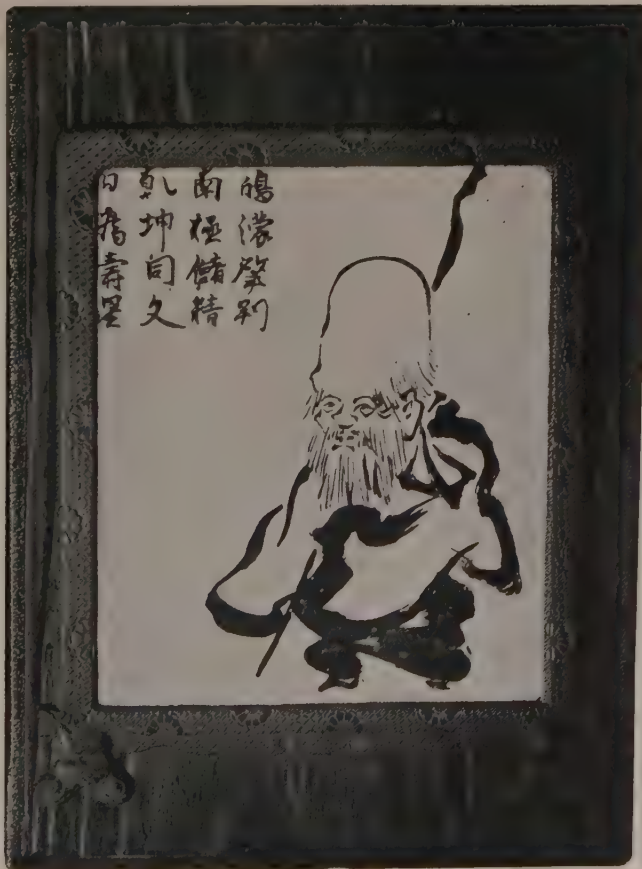 鴻濛肇判
南極儲精
乾坤同文
曰為壽星